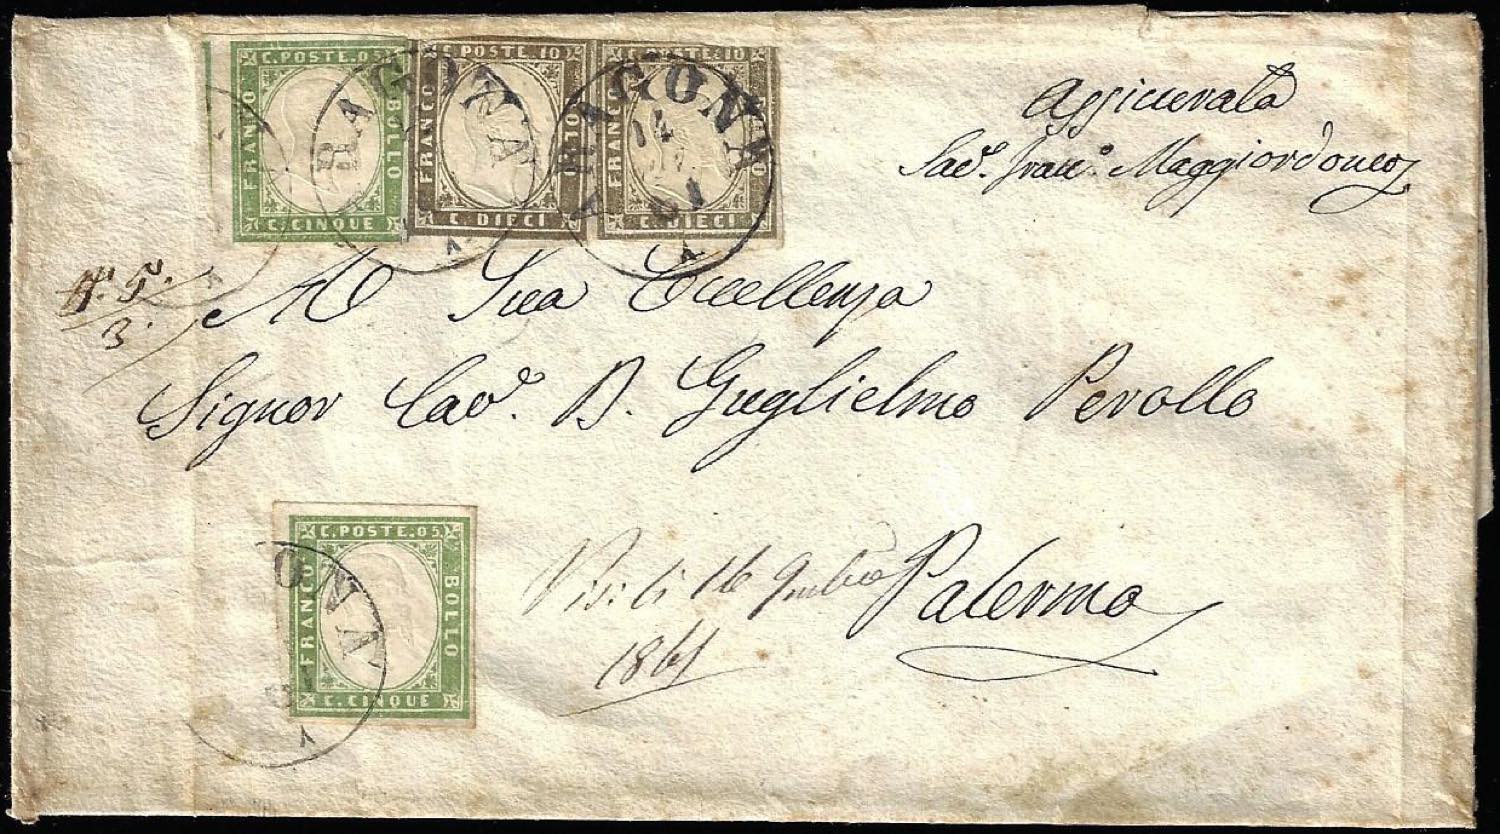 C. POSTE. 05
FRANCO
BOLLO
C. CINQUE
C. POSTE. 10
FRANCO
BOLLO
C. DIECI
C. POSTE. 10
FRANCO
BOLLO
C. DIECI
ARAGONA
ARAGONA
14
61
Assicurata
Maggiordomo
N. 5.
3.
A Sua Eccellenza
Signor Cav. D. Guglielmo Perollo
Palermo
16
1861
C. POSTE. 05
FRANCO
BOLLO
C. CINQUE
ONA